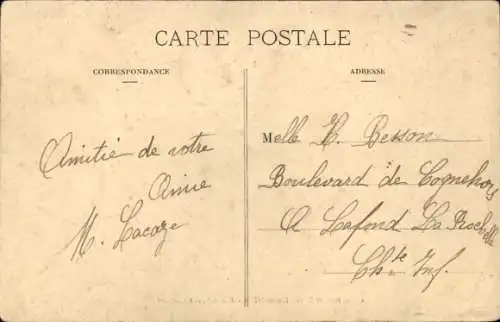 CARTE POSTALE
CORRESPONDANCE
ADRESSE
Amitié de votre
Amie
M. Lacaze
Melle H. Besson
Boulevard de Cognehors
A Lafond La Rochelle
Chte Inf.